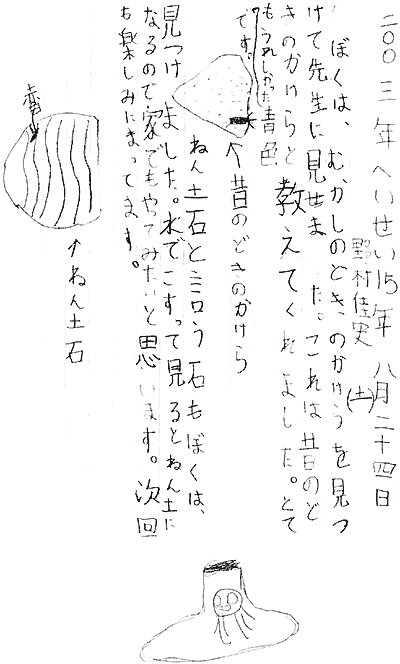 二〇〇三年へいせい15年八月二十四日
(土)
野村佳史
ぼくは、むかしのどき、のかけらを見つ
けて先生に見せました。これは昔のど
きのかけらと教えてくれました。とて
もうれしかった
です。
青色
↑昔のどきのかけら
ねん土石と言う石もぼくは、
見つけました。水でこすって見るとねん土に
なるので家でもやてみたいと思います。次回
も楽しみにまってます。
↑ねん土石